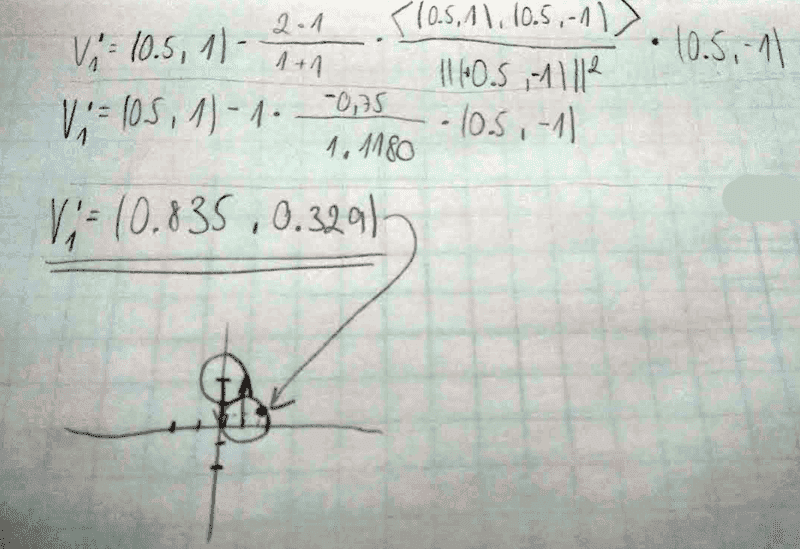 V₁' = (0.5, 1) - 2·1 / 1+1 · <(0.5, 1), (0.5, -1)> / ||(+0.5, -1)||² · (0.5, -1)
V₁' = (0.5, 1) - 1 · -0,75 / 1.1180 · (0.5, -1)
V₁' = (0.835, 0.329)